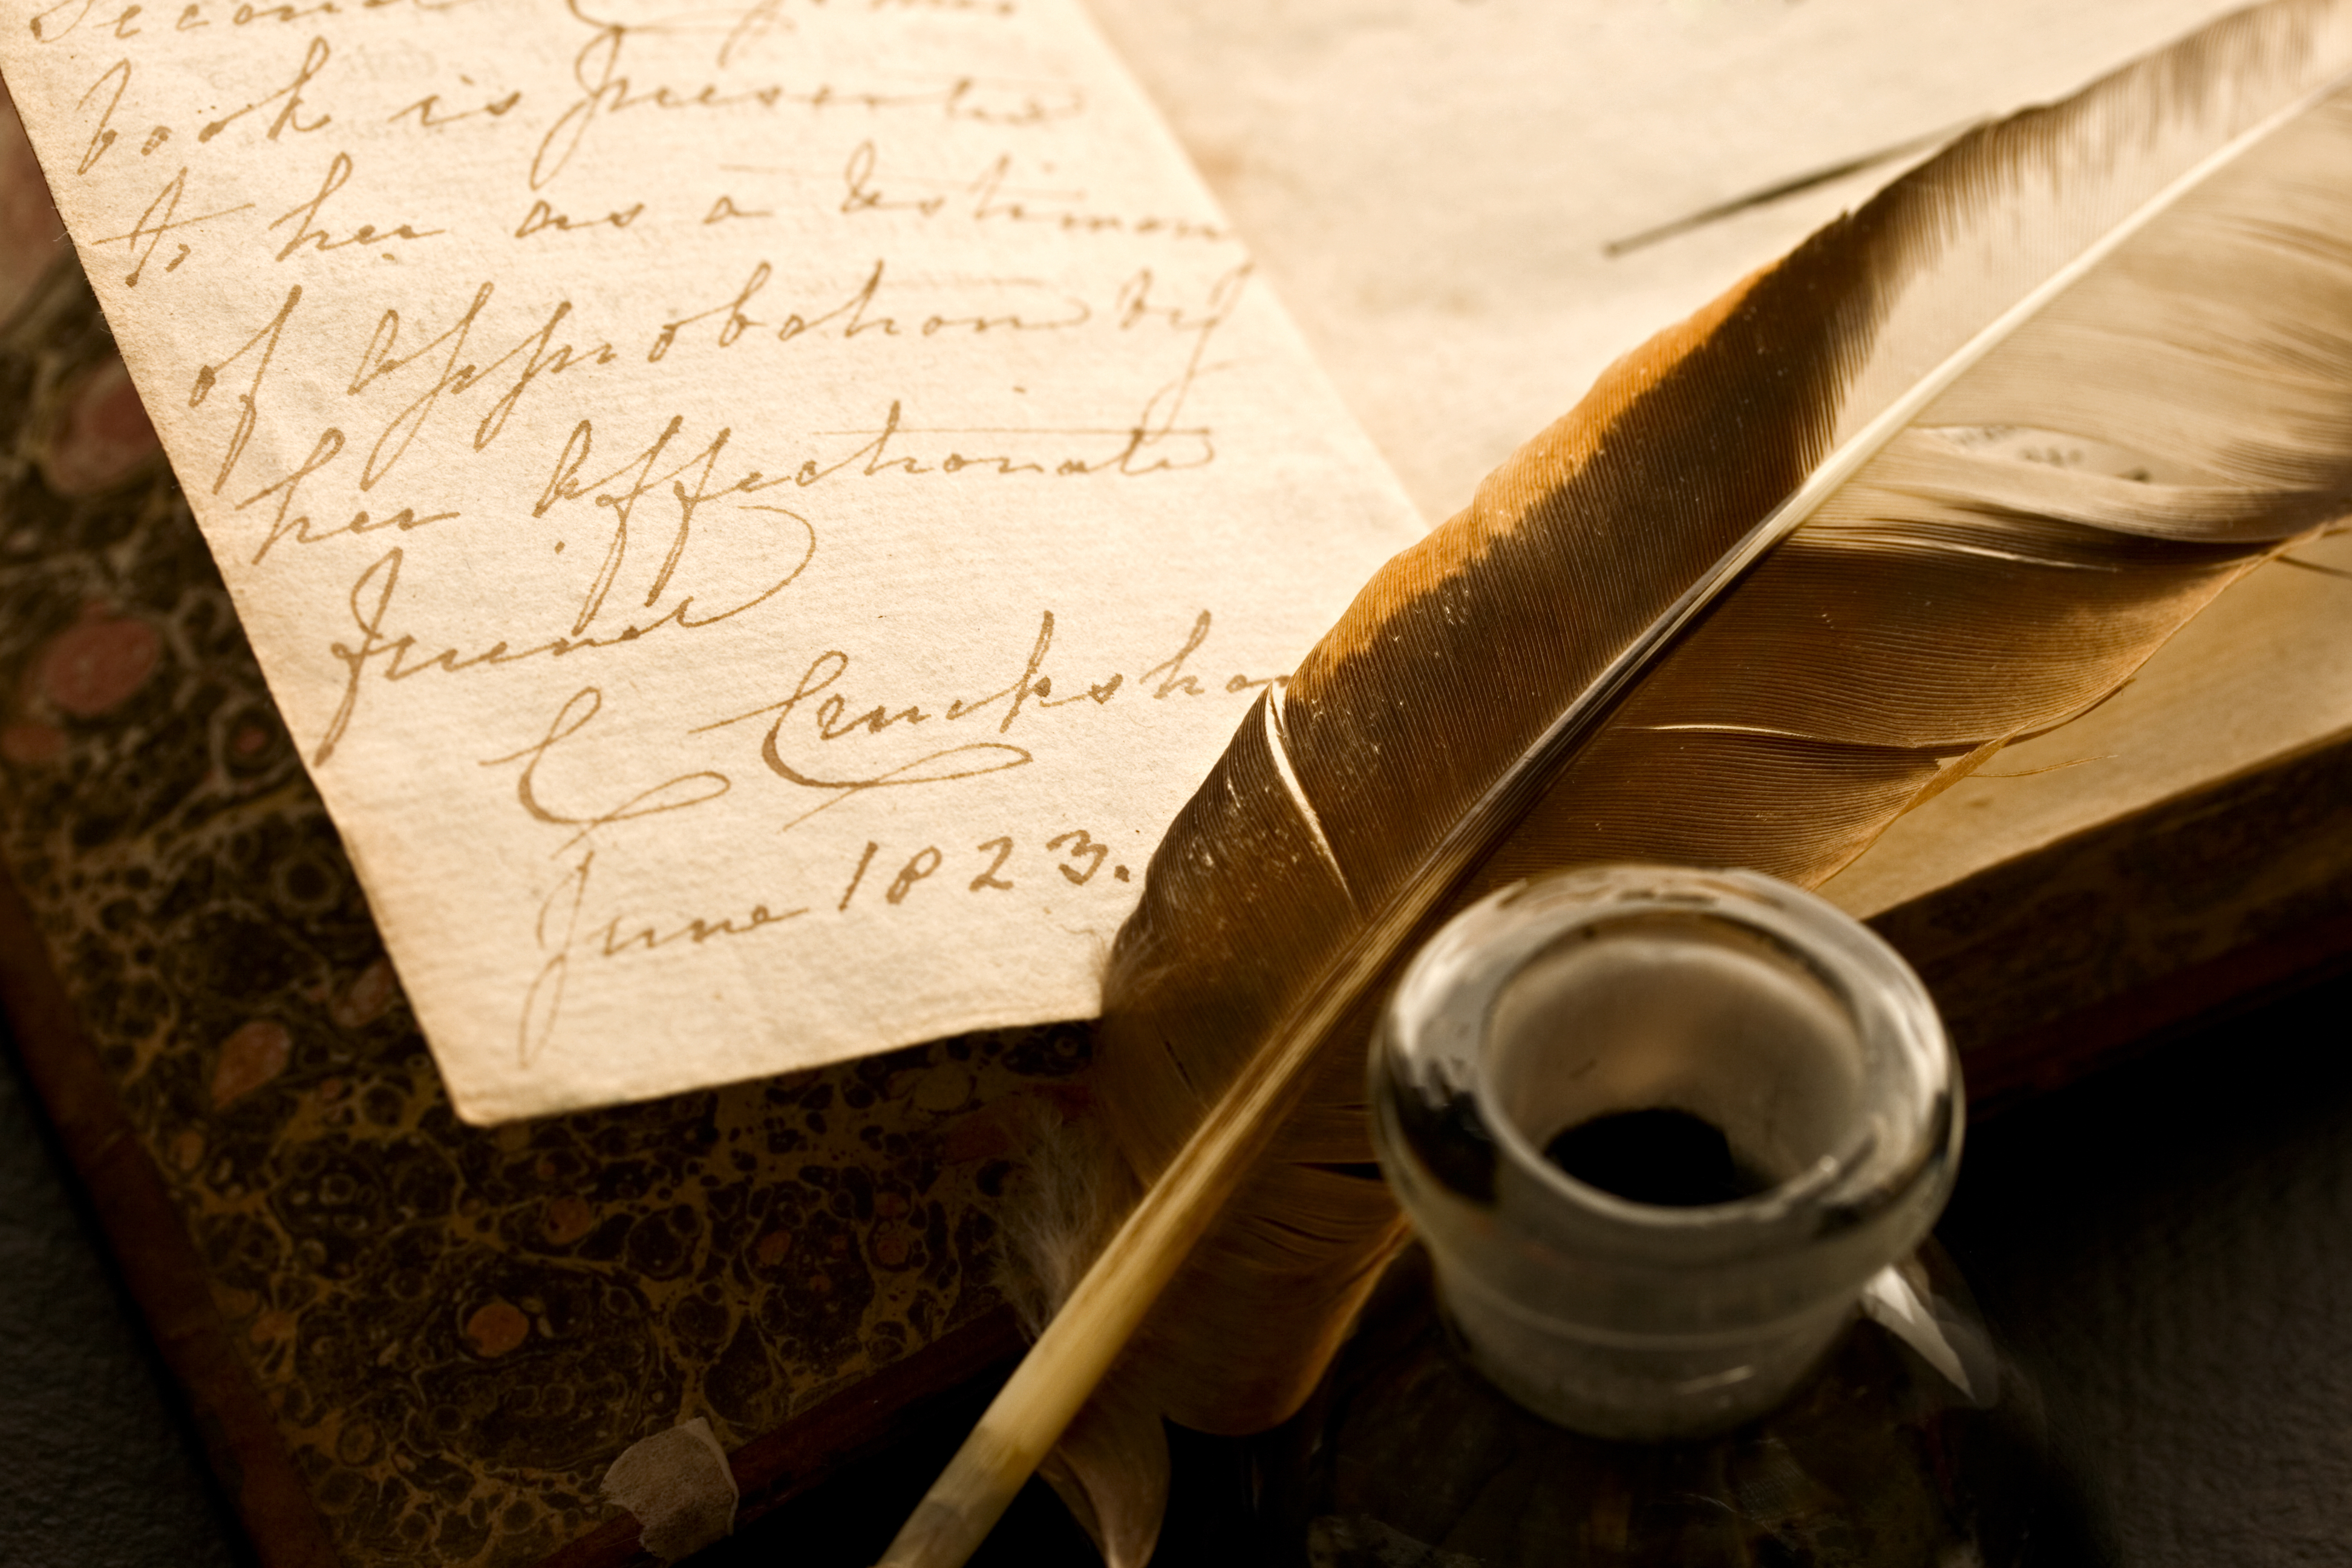 Second
book is presented
to her as a testimony
of approbation by
her affectionate
friend
C Cruicksha
June 1823.